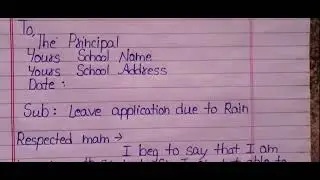 To,
The Principal
Yours School Name
Yours School Address
Date :
Sub : Leave application due to Rain
Respected mam →
I beg to say that I am